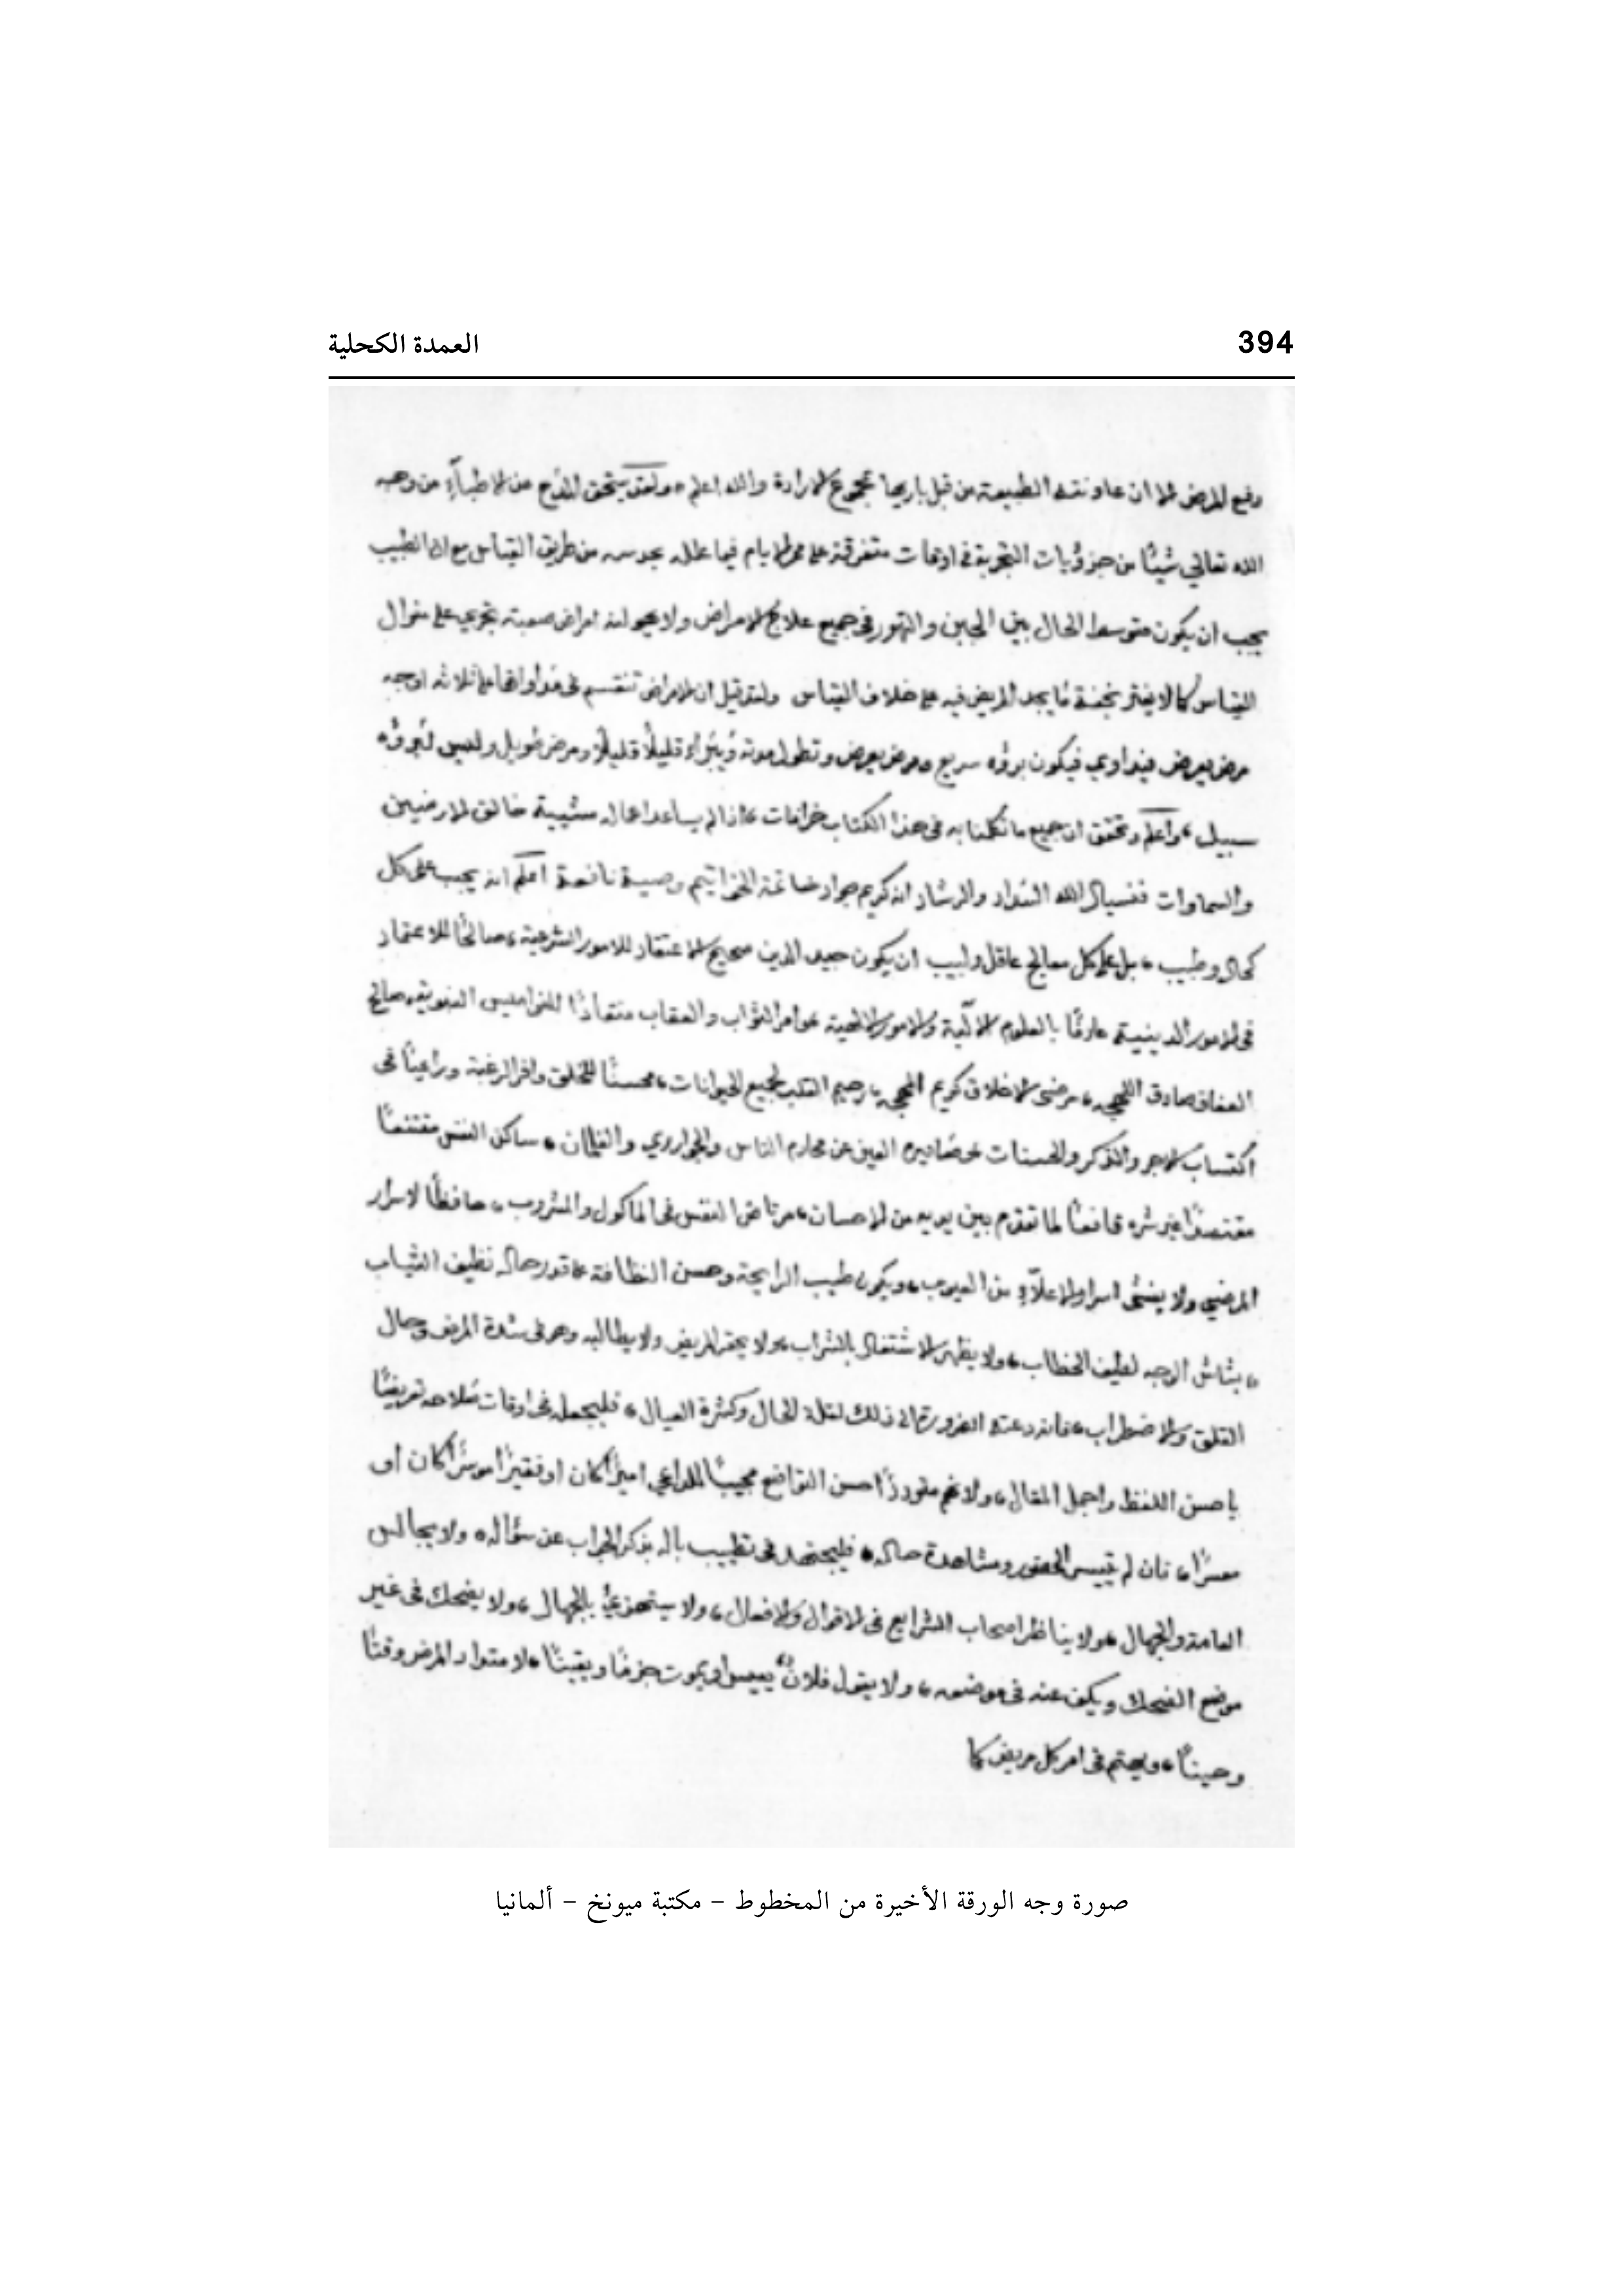 394
العمدة الكحلية
رفع المرض الا ان عاونته الطبيعة من قبل باريها بمجموع الارادة والله اعلم وكيف يتحقق من الاطباء من وجه
الله تعالى شيئا من جزؤيات التجربة في اوقات متفرقة على ممر الايام فيما علله بحدسه من طريق القياس مع ان الطبيب
يجب ان يكون متوسط الحال بين الجبن والتهور في جميع علاج الامراض ولا امراض صعبة تجري على منوال
القياس كما لا يغتر بخفة ما يجد المريض فيه على خلاف القياس ولقد قيل ان الامراض تنقسم في مداواتها على ثلاثه اوجه
مرض يعرض فيداوي فيكون برؤه سريع ومرض يعرض وتطول مدته ويبراء قليلا قليلا ومرض طويل وليس لبرؤه
سبيل، واعلم وتحقق ان جميع ما تكلمنا به في هذا الكتاب خرافات، اذا لم يساعد اعماله مشيية خالق الارضين
والسماوات فنسيال الله السداد والرشاد انه كريم جواد خاتمة الخواتيم وصية نافعة اعلم انه يجب على كل
كحال وطبيب، بل على كل معالج عاقل ولبيب ان يكون جيد الدين صحيح الاعتقاد للامور الشرعية، صالحا للاعتماد
في الامور الدينية، عارفا بالعلوم الآلية والامور الالهية، وامر الثواب والعقاب منقادا للنواميس النبوية، صالح
العفاف صادق اللهجه، مرضى الاخلاق كريم المهجه، رحيم القلب لجميع الحيوانات، محسنا للخلق وافر الرغبة وراعيا في
اكتساب الاجر والذكر والحسنات، غضاضيره العين عن محارم الناس والجواري والغلمان، ساكن النفس مقتنعا
مقتصدا غير شره قانعا لما تقدم بين يديه من الاحسان، مرتاض النفس في الماكول والمشروب، حافظا لاسرار
المرضي ولا يفشى اسرار الاعلآء من العيوب، ويكون طيب الرايحة وحسن النظافة، قدر حاله نظيف الثياب
، بشاش الوجه لطيف الخطاب، ولا يظهر الاشتغال بالشراب، ولا يحقر المريض ولا يطالبه وهو في شدة المرض وحال
القلق والاضطراب، فان دعته الضرورة الى ذلك لقلة الحال وكثرة العيال، فليجعله في اوقات صلاحه تعريضا
باحسن اللفظ واجمل المقال، متوددا حسن التواضع مجيبا للداعي اميرا كان او فقيرا موسرا كان او
معسرا، فان لم يتيسر الحضور ومشاهدة حاله، فليجتهد في تطييب باله بذكر الجواب عن سؤاله، ولا يجالس
العامة والجهال، ولا يناظر اصحاب الشرايع في الاقوال والافعال، ولا يستهزئ بالجهال، ولا يضحك في غير
موضع الضحك ويكف عنه في موضعه، ولا يقول فلان يعيش او يموت جزما ويقينا، لامتداد المرض وقتا
وحينا، ويهتم في امر كل مريض كما
صورة وجه الورقة الأخيرة من المخطوط – مكتبة ميونخ – ألمانيا